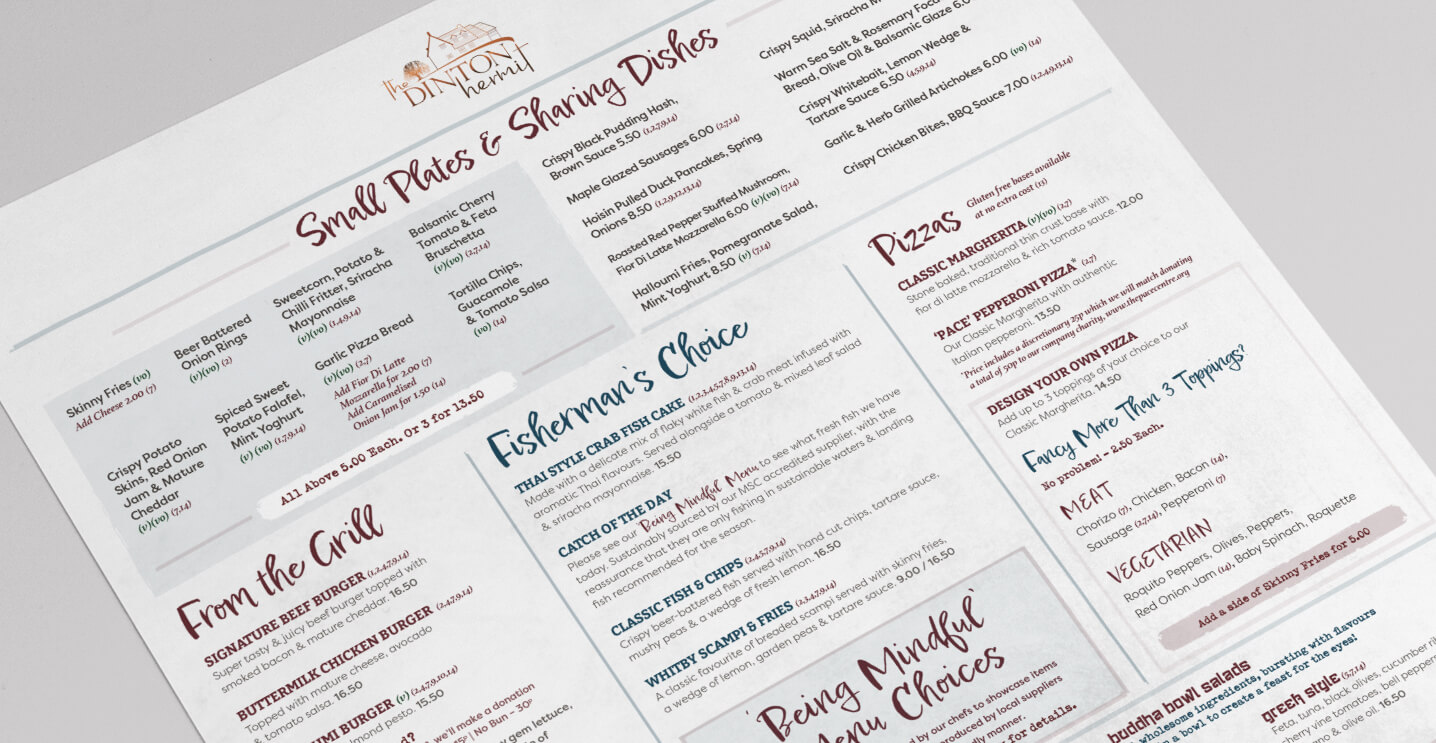 The
DINTON
hermit
Small Plates & Sharing Dishes
Skinny Fries (vo)
Add Cheese 2.00 (7)
Beer Battered
Onion Rings
(v)(vo) (2)
Sweetcorn, Potato &
Chilli Fritter, Sriracha
Mayonnaise
(v)(vo) (1,4,9,14)
Balsamic Cherry
Tomato & Feta
Bruschetta
(v)(vo) (2,7,14)
Crispy Potato
Skins, Red Onion
Jam & Mature
Cheddar
(v)(vo) (7,14)
Spiced Sweet
Potato Falafel,
Mint Yoghurt
(v) (vo) (1,7,9,14)
Garlic Pizza Bread
(v)(vo) (2,7)
Add Fior Di Latte
Mozzarella for 2.00 (7)
Add Caramelised
Onion Jam for 1.50 (14)
Tortilla Chips,
Guacamole
& Tomato Salsa
(vo) (14)
All Above 5.00 Each. Or 3 for 13.50
Crispy Black Pudding Hash,
Brown Sauce 5.50 (1,2,7,9,14)
Maple Glazed Sausages 6.00 (2,7,14)
Hoisin Pulled Duck Pancakes, Spring
Onions 8.50 (1,2,9,12,13,14)
Roasted Red Pepper Stuffed Mushroom,
Fior Di Latte Mozzarella 6.00 (v)(vo) (7,14)
Halloumi Fries, Pomegranate Salad,
Mint Yoghurt 8.50 (v) (7,14)
Crispy Squid, Sriracha
Warm Sea Salt & Rosemary
Bread, Olive Oil & Balsamic Glaze
Crispy Whitebait, Lemon Wedge &
Tartare Sauce 6.50 (4,5,9,14)
Garlic & Herb Grilled Artichokes 6.00 (vo) (14)
Crispy Chicken Bites, BBQ Sauce 7.00 (1,2,4,9,13,14)
From the Grill
SIGNATURE BEEF BURGER (1,2,4,7,9,14)
Super tasty & juicy beef burger topped with
smoked bacon & mature cheddar. 16.50
BUTTERMILK CHICKEN BURGER (2,4,7,9,14)
Topped with mature cheese, avocado
& tomato salsa. 16.50
BURGER (v) (2,4,7,9,10,14)
almond pesto. 15.50
we'll make a donation
No Bun - 30p
gem lettuce,
Fisherman's Choice
THAI STYLE CRAB FISH CAKE (1,2,3,4,5,7,8,9,13,14)
Made with a delicate mix of flaky white fish & crab meat infused with
aromatic Thai flavours. Served alongside a tomato & mixed leaf salad
& sriracha mayonnaise. 15.50
CATCH OF THE DAY
Please see our 'Being Mindful' Menu to see what fresh fish we have
today. Sustainably sourced by our MSC accredited supplier, with the
reassurance that they are only fishing in sustainable waters & landing
fish recommended for the season.
CLASSIC FISH & CHIPS (2,4,5,7,9,14)
Crispy beer-battered fish served with hand cut chips, tartare sauce,
mushy peas & a wedge of fresh lemon. 16.50
WHITBY SCAMPI & FRIES (2,3,4,7,9,14)
A classic favourite of breaded scampi served with skinny fries,
a wedge of lemon, garden peas & tartare sauce. 9.00 / 16.50
'Being Mindful'
Menu Choices
by our chefs to showcase items
produced by local suppliers
manner.
for details.
Pizzas
Gluten free bases available
at no extra cost (13)
CLASSIC MARGHERITA (v)(vo) (2,7)
Stone baked, traditional thin crust base with
fior di latte mozzarella & rich tomato sauce. 12.00
'PACE' PEPPERONI PIZZA* (2,7)
Our Classic Margherita with authentic
Italian pepperoni. 13.50
*Price includes a discretionary 25p which we will match donating
a total of 50p to our company charity, www.thepacecentre.org
DESIGN YOUR OWN PIZZA
Add up to 3 toppings of your choice to our
Classic Margherita. 14.50
Fancy More Than 3 Toppings?
No problem! - 2.50 Each.
MEAT
Chorizo (7), Chicken, Bacon (14),
Sausage (2,7,14), Pepperoni (7)
VEGETARIAN
Roquito Peppers, Olives, Peppers,
Red Onion Jam (14), Baby Spinach, Roquette
Add a side of Skinny Fries for 5.00
buddha bowl salads
wholesome ingredients, bursting with flavours
in a bowl to create a feast for the eyes!
greek style (5,7,14)
Feta, tuna, black olives, cucumber
cherry vine tomatoes, bell
& olive oil. 16.50